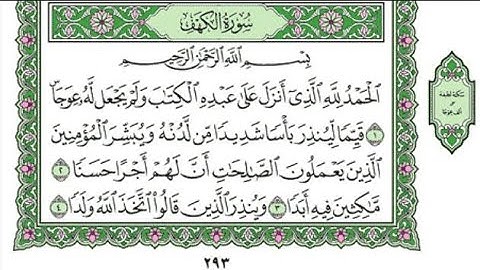 سُورَةُ الْكَهْفِ
بِسْمِ اللَّهِ الرَّحْمَٰنِ الرَّحِيمِ
الْحَمْدُ لِلَّهِ الَّذِي أَنْزَلَ عَلَىٰ عَبْدِهِ الْكِتَابَ وَلَمْ يَجْعَلْ لَهُ عِوَجًا ۜ
١ قَيِّمًا لِيُنْذِرَ بَأْسًا شَدِيدًا مِنْ لَدُنْهُ وَيُبَشِّرَ الْمُؤْمِنِينَ
الَّذِينَ يَعْمَلُونَ الصَّالِحَاتِ أَنَّ لَهُمْ أَجْرًا حَسَنًا ٢
مَاكِثِينَ فِيهِ أَبَدًا ٣ وَيُنْذِرَ الَّذِينَ قَالُوا اتَّخَذَ اللَّهُ وَلَدًا ٤
٢٩٣
سكتة لطيفة
على
ألف عوجا